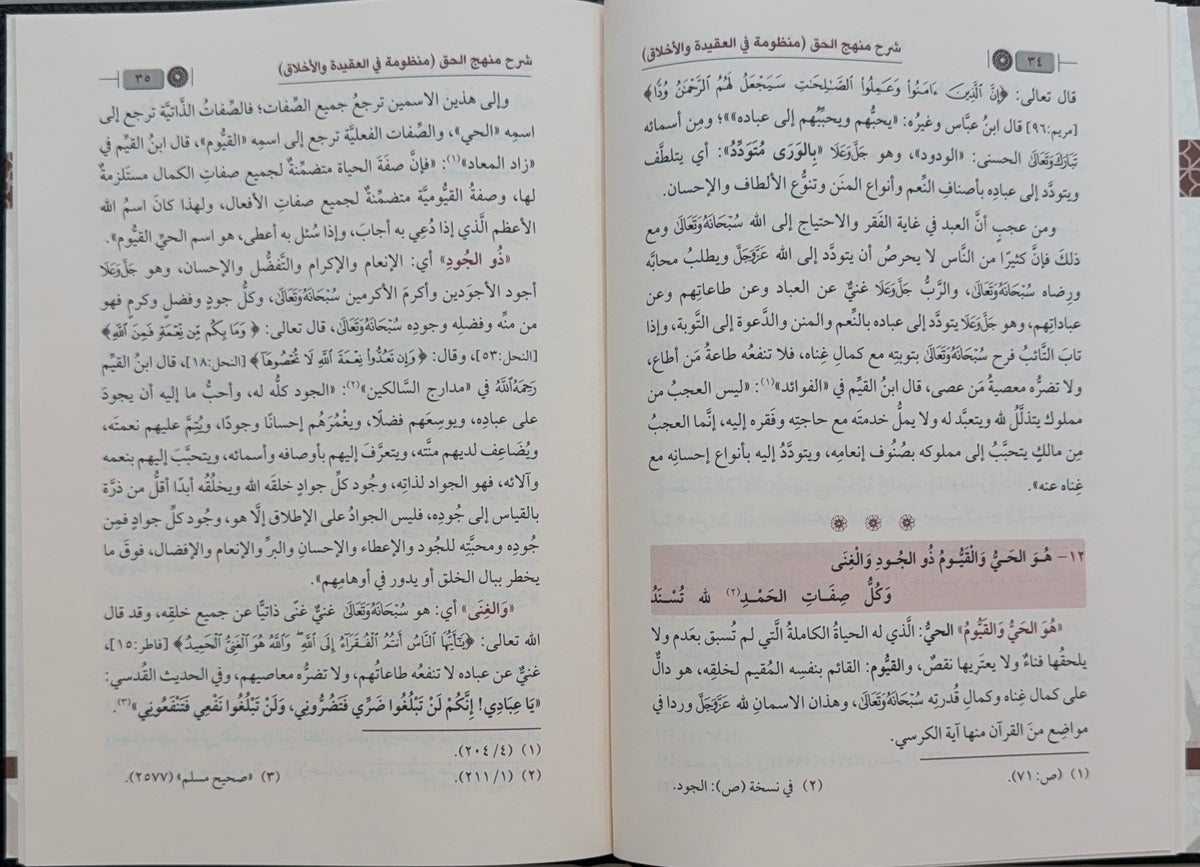 ٣٤
شرح منهج الحق (منظومة في العقيدة والأخلاق)
قال تعالى: ﴿إِنَّ ٱلَّذِينَ ءَامَنُوا۟ وَعَمِلُوا۟ ٱلصَّٰلِحَٰتِ سَيَجْعَلُ لَهُمُ ٱلرَّحْمَٰنُ وُدًّا﴾
[مريم:٩٦] قال ابنُ عبَّاس وغيرُه: «يحبُّهم ويحبِّبُهم إلى عباده»؛ ومِن أسمائه
تَبَارَكَ وَتَعَالَىٰ الحسنى: «الودود»، وهو جَلَّ وَعَلَا «بِالوَرَى مُتَوَدِّدُ»: أي يتلطَّف
ويتودَّد إلى عبادِه بأصنافِ النِّعم وأنواع المنَن وتنوُّع الألطاف والإحسان.
ومن عجبٍ أنَّ العبد في غاية الفَقر والاحتياج إلى الله سُبْحَانَهُ وَتَعَالَىٰ ومع
ذلكَ فإنَّ كثيرًا من النَّاس لا يحرصُ أن يتودَّد إلى الله عَزَّوَجَلَّ ويطلبُ محابَّه
ورِضاه سُبْحَانَهُ وَتَعَالَىٰ، والرَّبُّ جَلَّ وَعَلَا غنيٌّ عن العباد وعن طاعاتِهم وعن
عباداتِهم، وهو جَلَّ وَعَلَا يتودَّد إلى عباده بالنِّعم والمنن والدَّعوة إلى التَّوبة، وإذا
تابَ التَّائبُ فرح سُبْحَانَهُ وَتَعَالَىٰ بتوبتِه مع كمالِ غِناه، فلا تنفعُه طاعةُ مَن أطاع،
ولا تضرُّه معصيةُ مَن عصى، قال ابنُ القيِّم في «الفوائد»(١): «ليس العجبُ من
مملوك يتذلَّلُ لله ويتعبَّد له ولا يملُّ خدمتَه مع حاجتِه وفَقره إليه، إنَّما العجبُ
مِن مالكٍ يتحبَّبُ إلى مملوكه بصُنُوف إنعامِه، ويتودَّدُ إليه بأنواع إحسانِه مع
غِناه عنه».
١٢- هُوَ الحَيُّ وَالْقَيُّومُ ذُو الجُودِ وَالْغِنَى
وَكُلُّ صِفَاتِ الحَمْدِ(٢) لله تُسْنَدُ
«هُوَ الحَيُّ وَالقَيُّومُ» الحيُّ: الَّذي له الحياةُ الكاملةُ الَّتي لم تُسبق بعَدم ولا
يلحقُها فناءٌ ولا يعتريها نقصٌ، والقيُّوم: القائم بنفسِه المُقيم لخلقِه، هو دالٌّ
على كمال غِناه وكمالِ قُدرتِه سُبْحَانَهُ وَتَعَالَىٰ، وهذان الاسمانِ لله عَزَّوَجَلَّ وردا في
مواضِع منَ القرآن منها آية الكرسي.
(١) (ص: ٧١).
(٢) في نسخة (ص): الجود.
شرح منهج الحق (منظومة في العقيدة والأخلاق)
٣٥
وإلى هذين الاسمين ترجعُ جميع الصِّفات؛ فالصِّفاتُ الذَّاتيَّة ترجع إلى
اسمِه «الحي»، والصِّفات الفعليَّة ترجع إلى اسمِه «القيُّوم»، قال ابنُ القيِّم في
«زاد المعاد»(١): «فإنَّ صفَةَ الحياة متضمِّنةٌ لجميع صفاتِ الكمال مستَلزمةٌ
لها، وصفةُ القيُّوميَّة متضمِّنةٌ لجميع صفاتِ الأفعال، ولهذا كانَ اسمُ الله
الأعظم الَّذي إذا دُعِي به أجابَ، وإذا سُئل به أعطى، هو اسم الحيِّ القيُّوم».
«ذُو الجُودِ» أي: الإنعام والإكرام والتَّفضُّل والإحسان، وهو جَلَّ وَعَلَا
أجود الأجوَدين وأكرمَ الأكرمين سُبْحَانَهُ وَتَعَالَىٰ، وكلُّ جودٍ وفضلٍ وكرمٍ فهو
من منِّه وفضلِه وجودِه سُبْحَانَهُ وَتَعَالَىٰ، قال تعالى: ﴿وَمَا بِكُم مِّن نِّعْمَةٍ فَمِنَ ٱللَّهِ﴾
[النحل:٥٣]، وقال: ﴿وَإِن تَعُدُّوا۟ نِعْمَةَ ٱللَّهِ لَا تُحْصُوهَآ﴾ [النحل:١٨]، قال ابنُ القيِّم
رَحِمَهُ ٱللَّهُ في «مدارج السَّالكين»(٢): «الجود كلُّه له، وأحبُّ ما إليه أن يجودَ
على عباده، ويوسِعَهم فضلًا، ويغْمُرَهُم إحسانًا وجودًا، ويُتِمَّ عليهم نعمتَه،
ويُضَاعِف لديهم منَّتَه، ويتعرَّفَ إليهم بأوصافِه وأسمائه، ويتحبَّبَ إليهم بنعمه
وآلائه، فهو الجواد لذاتِه، وجُود كلِّ جوادٍ خلقَه الله ويخلُقُه أبدًا أقلُّ من ذرَّة
بالقياس إلى جُودِه، فليس الجوادُ على الإطلاق إلَّا هو، وجُود كلِّ جوادٍ فمِن
جُودِه ومحبَّتِه للجُود والإعطاء والإحسانِ والبرِّ والإنعام والإفضال، فوقَ ما
يخطر ببال الخلق أو يدور في أوهامِهم».
«وَالغِنَى» أي: هو سُبْحَانَهُ وَتَعَالَىٰ غنيٌّ غنًى ذاتيًّا عن جميع خلقِه، وقد قال
الله تعالى: ﴿يَٰٓأَيُّهَا ٱلنَّاسُ أَنتُمُ ٱلْفُقَرَآءُ إِلَى ٱللَّهِ ۖ وَٱللَّهُ هُوَ ٱلْغَنِىُّ ٱلْحَمِيدُ﴾ [فاطر:١٥]،
غنيٌّ عن عباده لا تنفعُه طاعاتُهم، ولا تضرُّه معاصيهم، وفي الحديث القُدسي:
«يَا عِبَادِي! إِنَّكُمْ لَنْ تَبْلُغُوا ضَرِّي فَتَضُرُّونِي، وَلَنْ تَبْلُغُوا نَفْعِي فَتَنْفَعُونِي»(٣).
(١) (٢٠٤/٤).
(٢) (٢١١/١).
(٣) «صحيح مسلم» (٢٥٧٧).